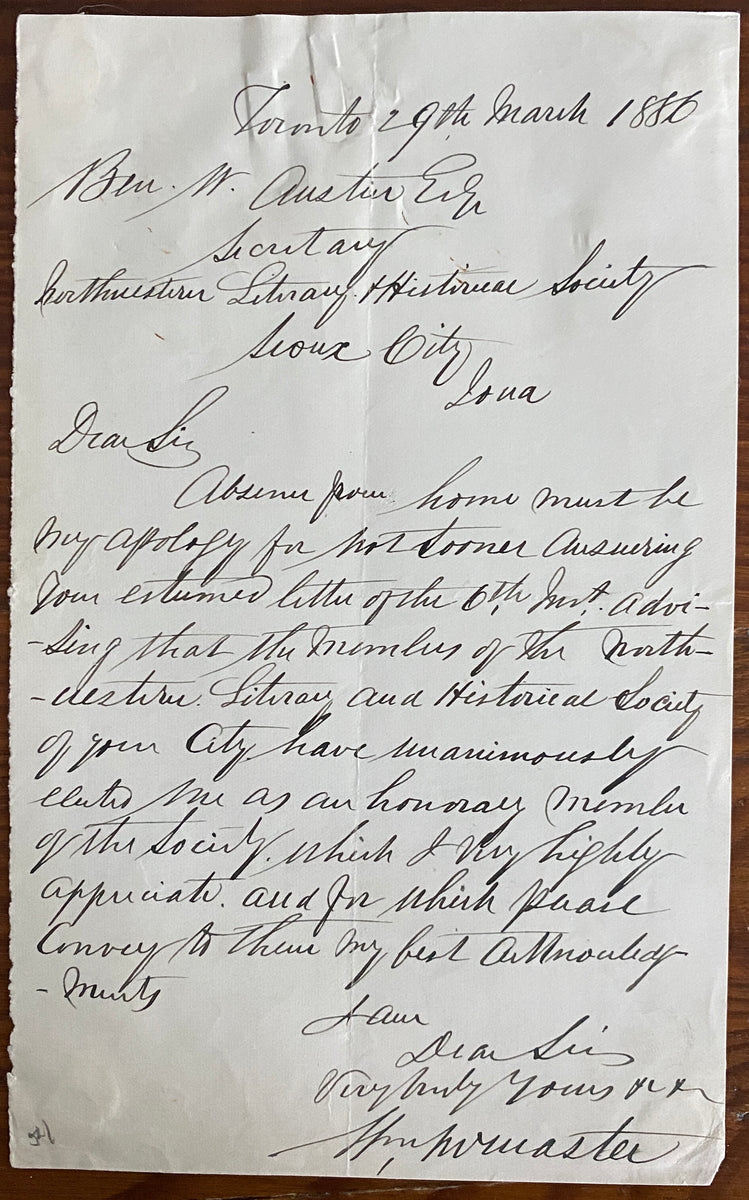 Toronto 29th March 1886
Ben. W. Austin Esqr
Secretary
Northwestern Literary & Historical Society
Sioux City
Iowa
Dear Sir
Absence from home must be
my apology for not sooner answering
your esteemed letter of the 6th, Inst. advi-
-sing that the Members of the North-
-western Literary and Historical Society
of your City have unanimously
elected me as an honorary Member
of the Society. which I very highly
appreciate. and for which please
Convey to them my best acknowledg-
-ments
I am
Dear Sir
Very truly yours &c &c
Wm McMaster